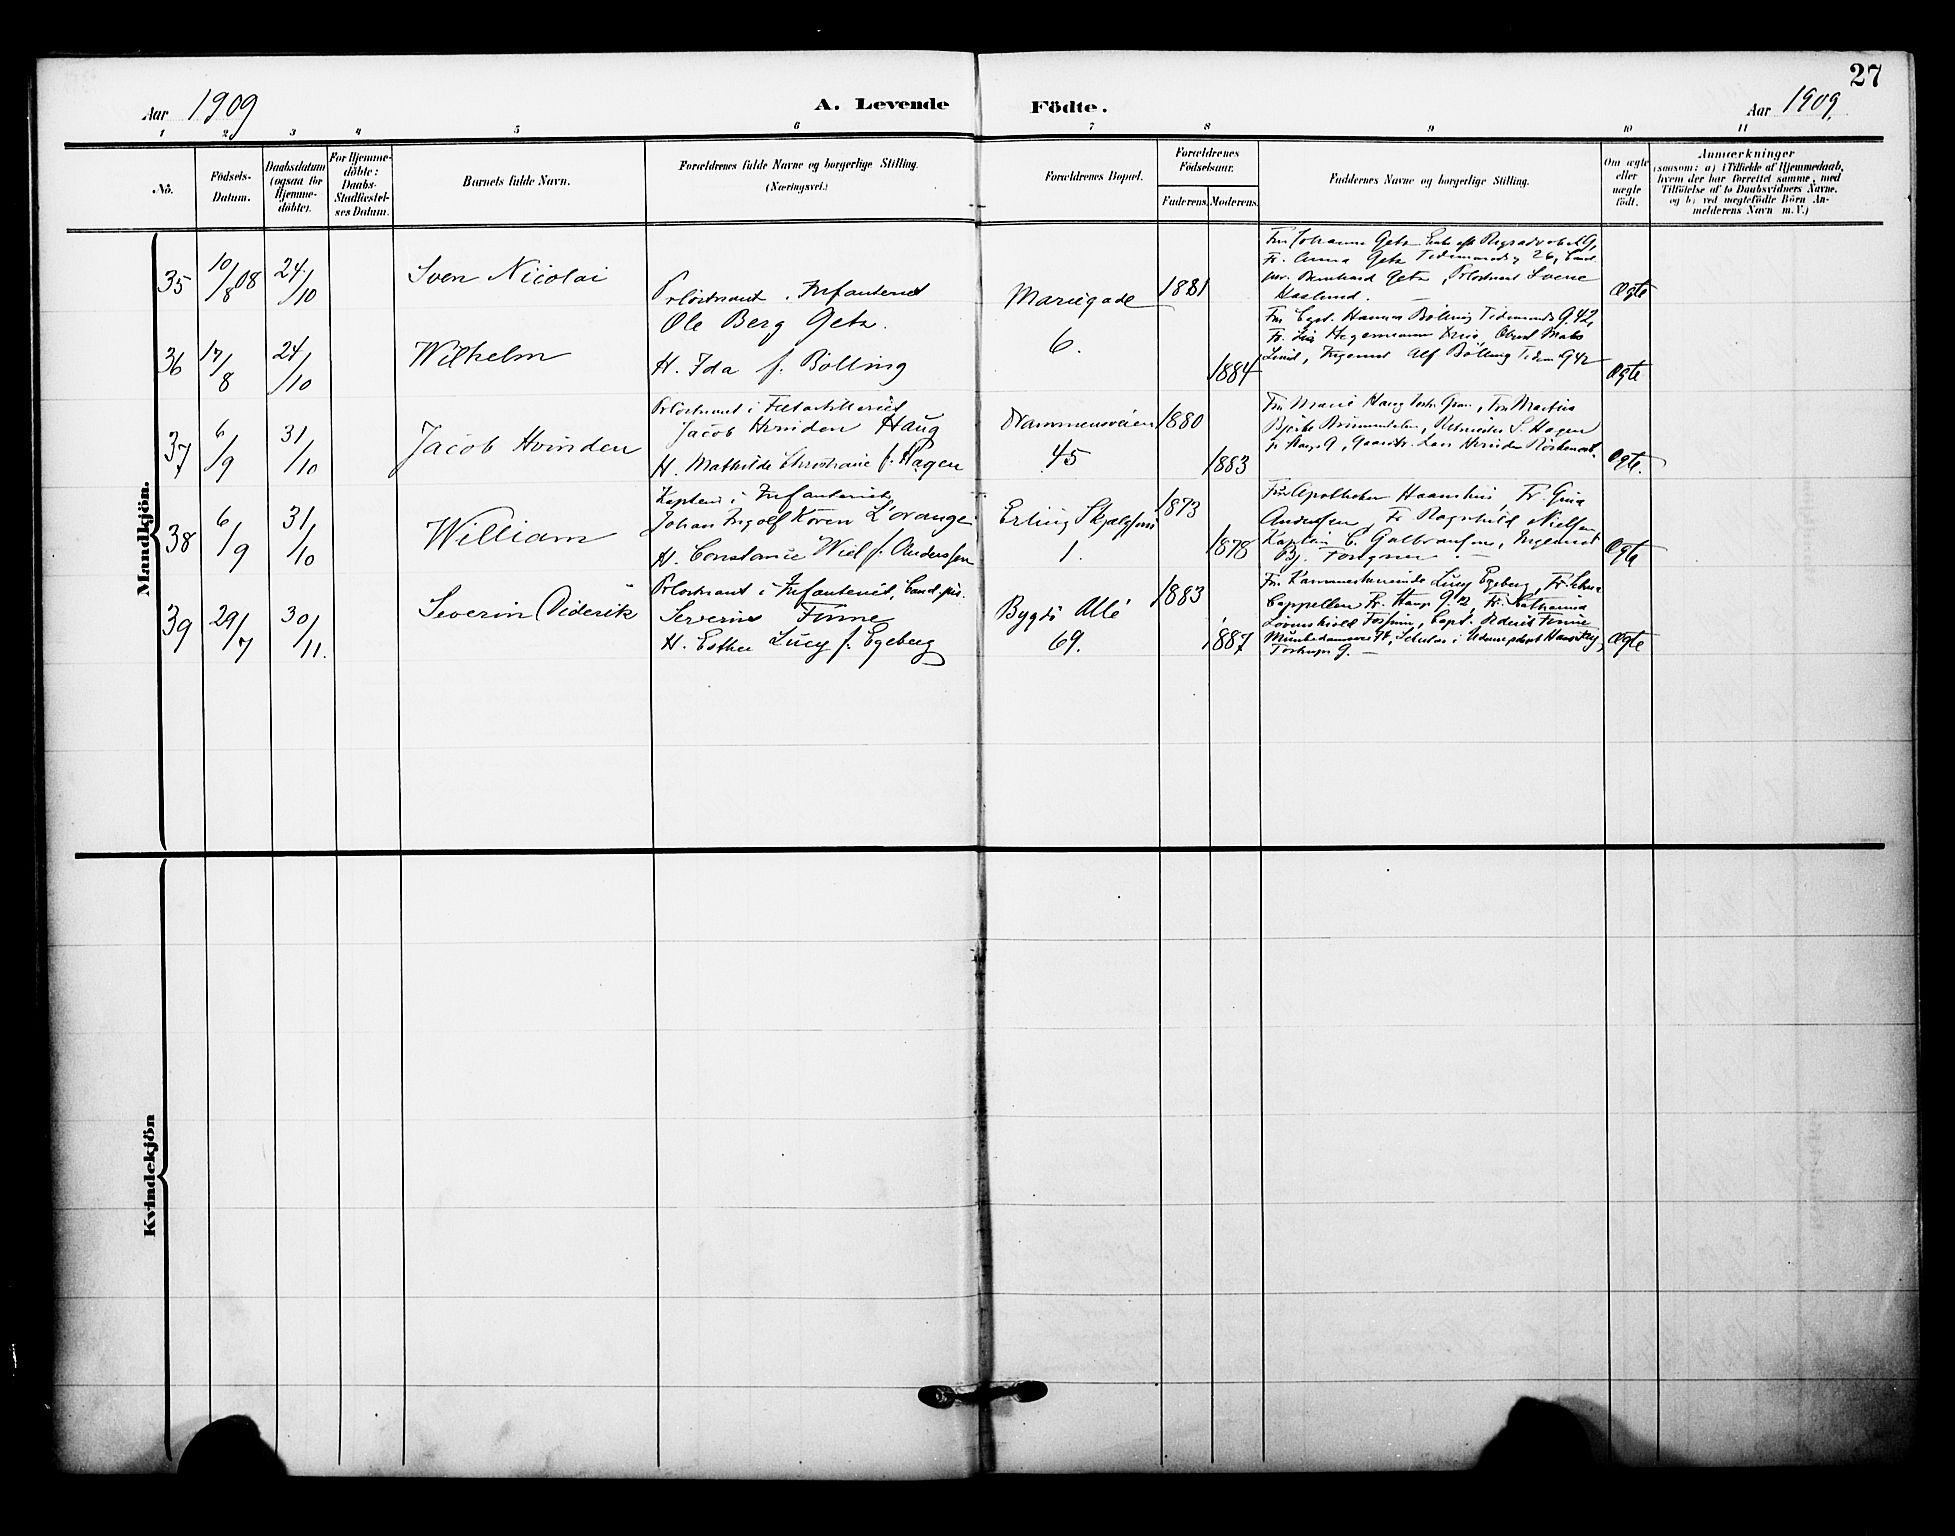 27
Aar 1909
A. Levende Födte.
Aar 1909
1 2 3 4 5 6 7 8 9 10 11
No.
Födsels-
Datum.
Daabsdatum
(ogsaa for
Hjemme-
döbte).
For Hjemme-
döbte:
Daabs-
Stadfæstel-
ses Datum.
Barnets fulde Navn.
Forældrenes fulde Navne og borgerlige Stilling.
(Næringsvei.)
Forældrenes Bopæl.
Forældrenes
Födselsaar.
Faderens. Moderens.
Faddernes Navne og borgerlige Stilling.
Om ægte
eller
uægte
født.
Anmærkninger
(saasom: a) i Tilfælde af Hjemmedaab,
hvem der har forrettet samme, med
Tilföielse af to Daabsvidners Navne,
og b) ved uægtefödte Börn An-
melderens Navn m. V.)
Mandkjön.
35 10/8 08 24/10 Sven Nicolai
Prlöitnant i Infanteriet
Ole Berg Getz.
Mariegade
6.
1881
Fru Johanne Getz
Fr. Anna Getz Tidemandsg 26, Cand.
jur. Bernhard Getz, Prlöitnant Sverre
Haslund. —
Ægte
36 17/8 24/10 Wilhelm
H. Ida f. Bölling
1884
Fru Capt. Hanna Bölling Tidemands G. 42,
Lund, Ingeniör Alf Bölling Tidem G 42
Ægte
37 6/9 31/10 Jacob Hvinden
Prlöitnant i Feltartilleriet
Jacob Hvinden Haug
H. Mathilde Christiane f. Hagen
Drammensveien
45
1880
1883
Fru Marie Haug
Ægte.
38 6/9 31/10 William
Kaptein i Infanteriet
Johan Ingolf Koren L'orange
H. Constance Wiel f. Anderssen
Erling Skjalgsøns
1.
1873
1878
Fru Apotheker
Anderssen, Fr. Ragnhild Nielsen
Kaptein C. Gulbransen, Ingeniör
Ægte
39 29/7 30/11. Severin Diderik
Prlöitnant i Infanteriet, Cand. jur.
Severin Finne
H. Esther Lucy f. Egeberg
Bygdö Allé
69.
1883
1887
Fru Kammerherreinde Lucy Egeberg, Fr.
Cappellen Fr. Haup G. 12, Fr. Katharina
Lövenskiold Fossum, Capt. Diderik Finne
Ægte
Kvindekjön